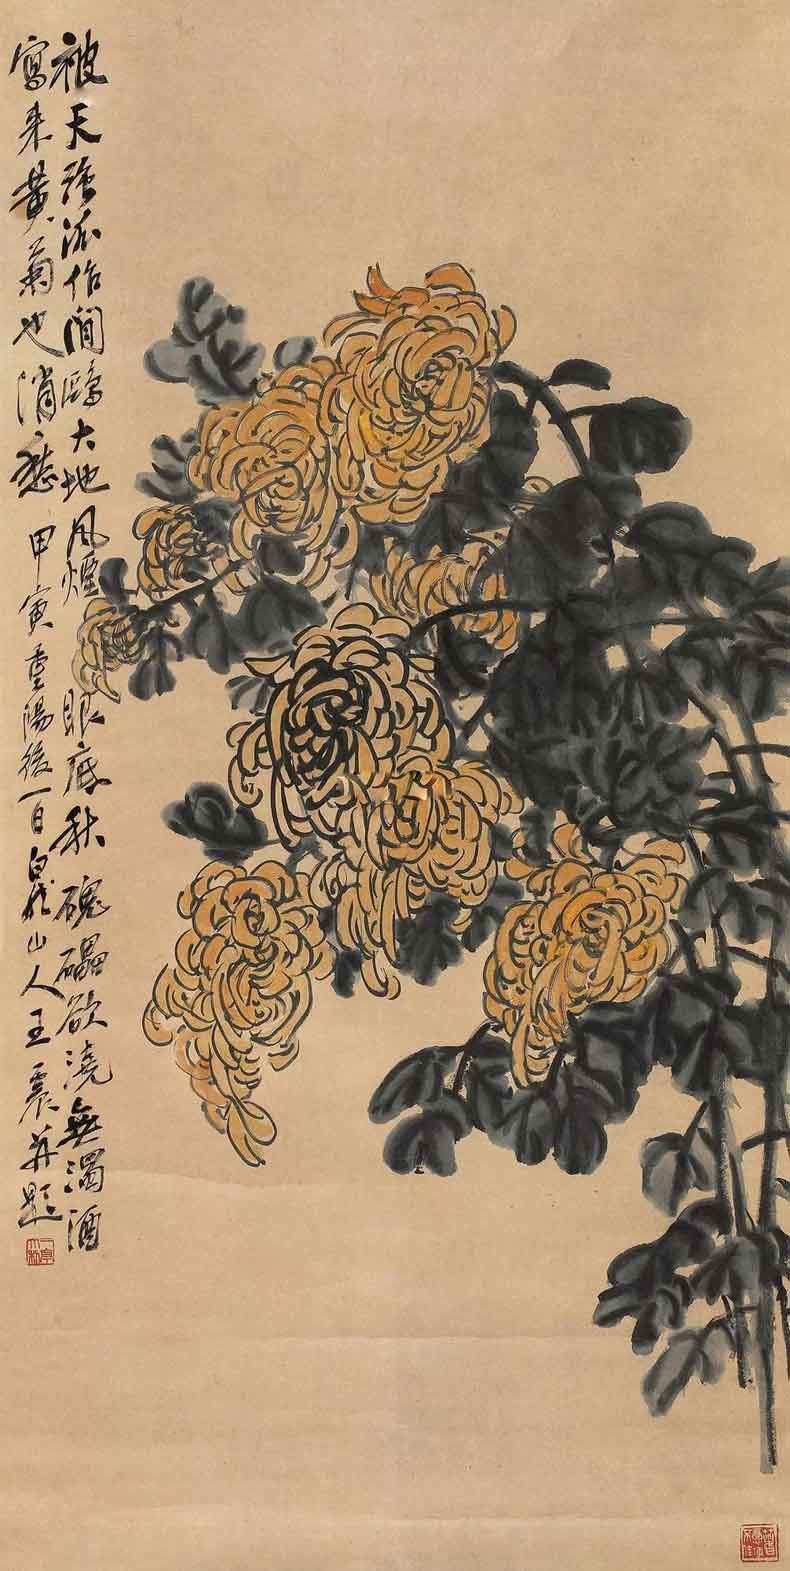 被天強派作閒鷗大地風煙眼底秋磈礧欲澆無濁酒
寫來黃菊也消愁 甲寅重陽後一日白龍山人王震并題